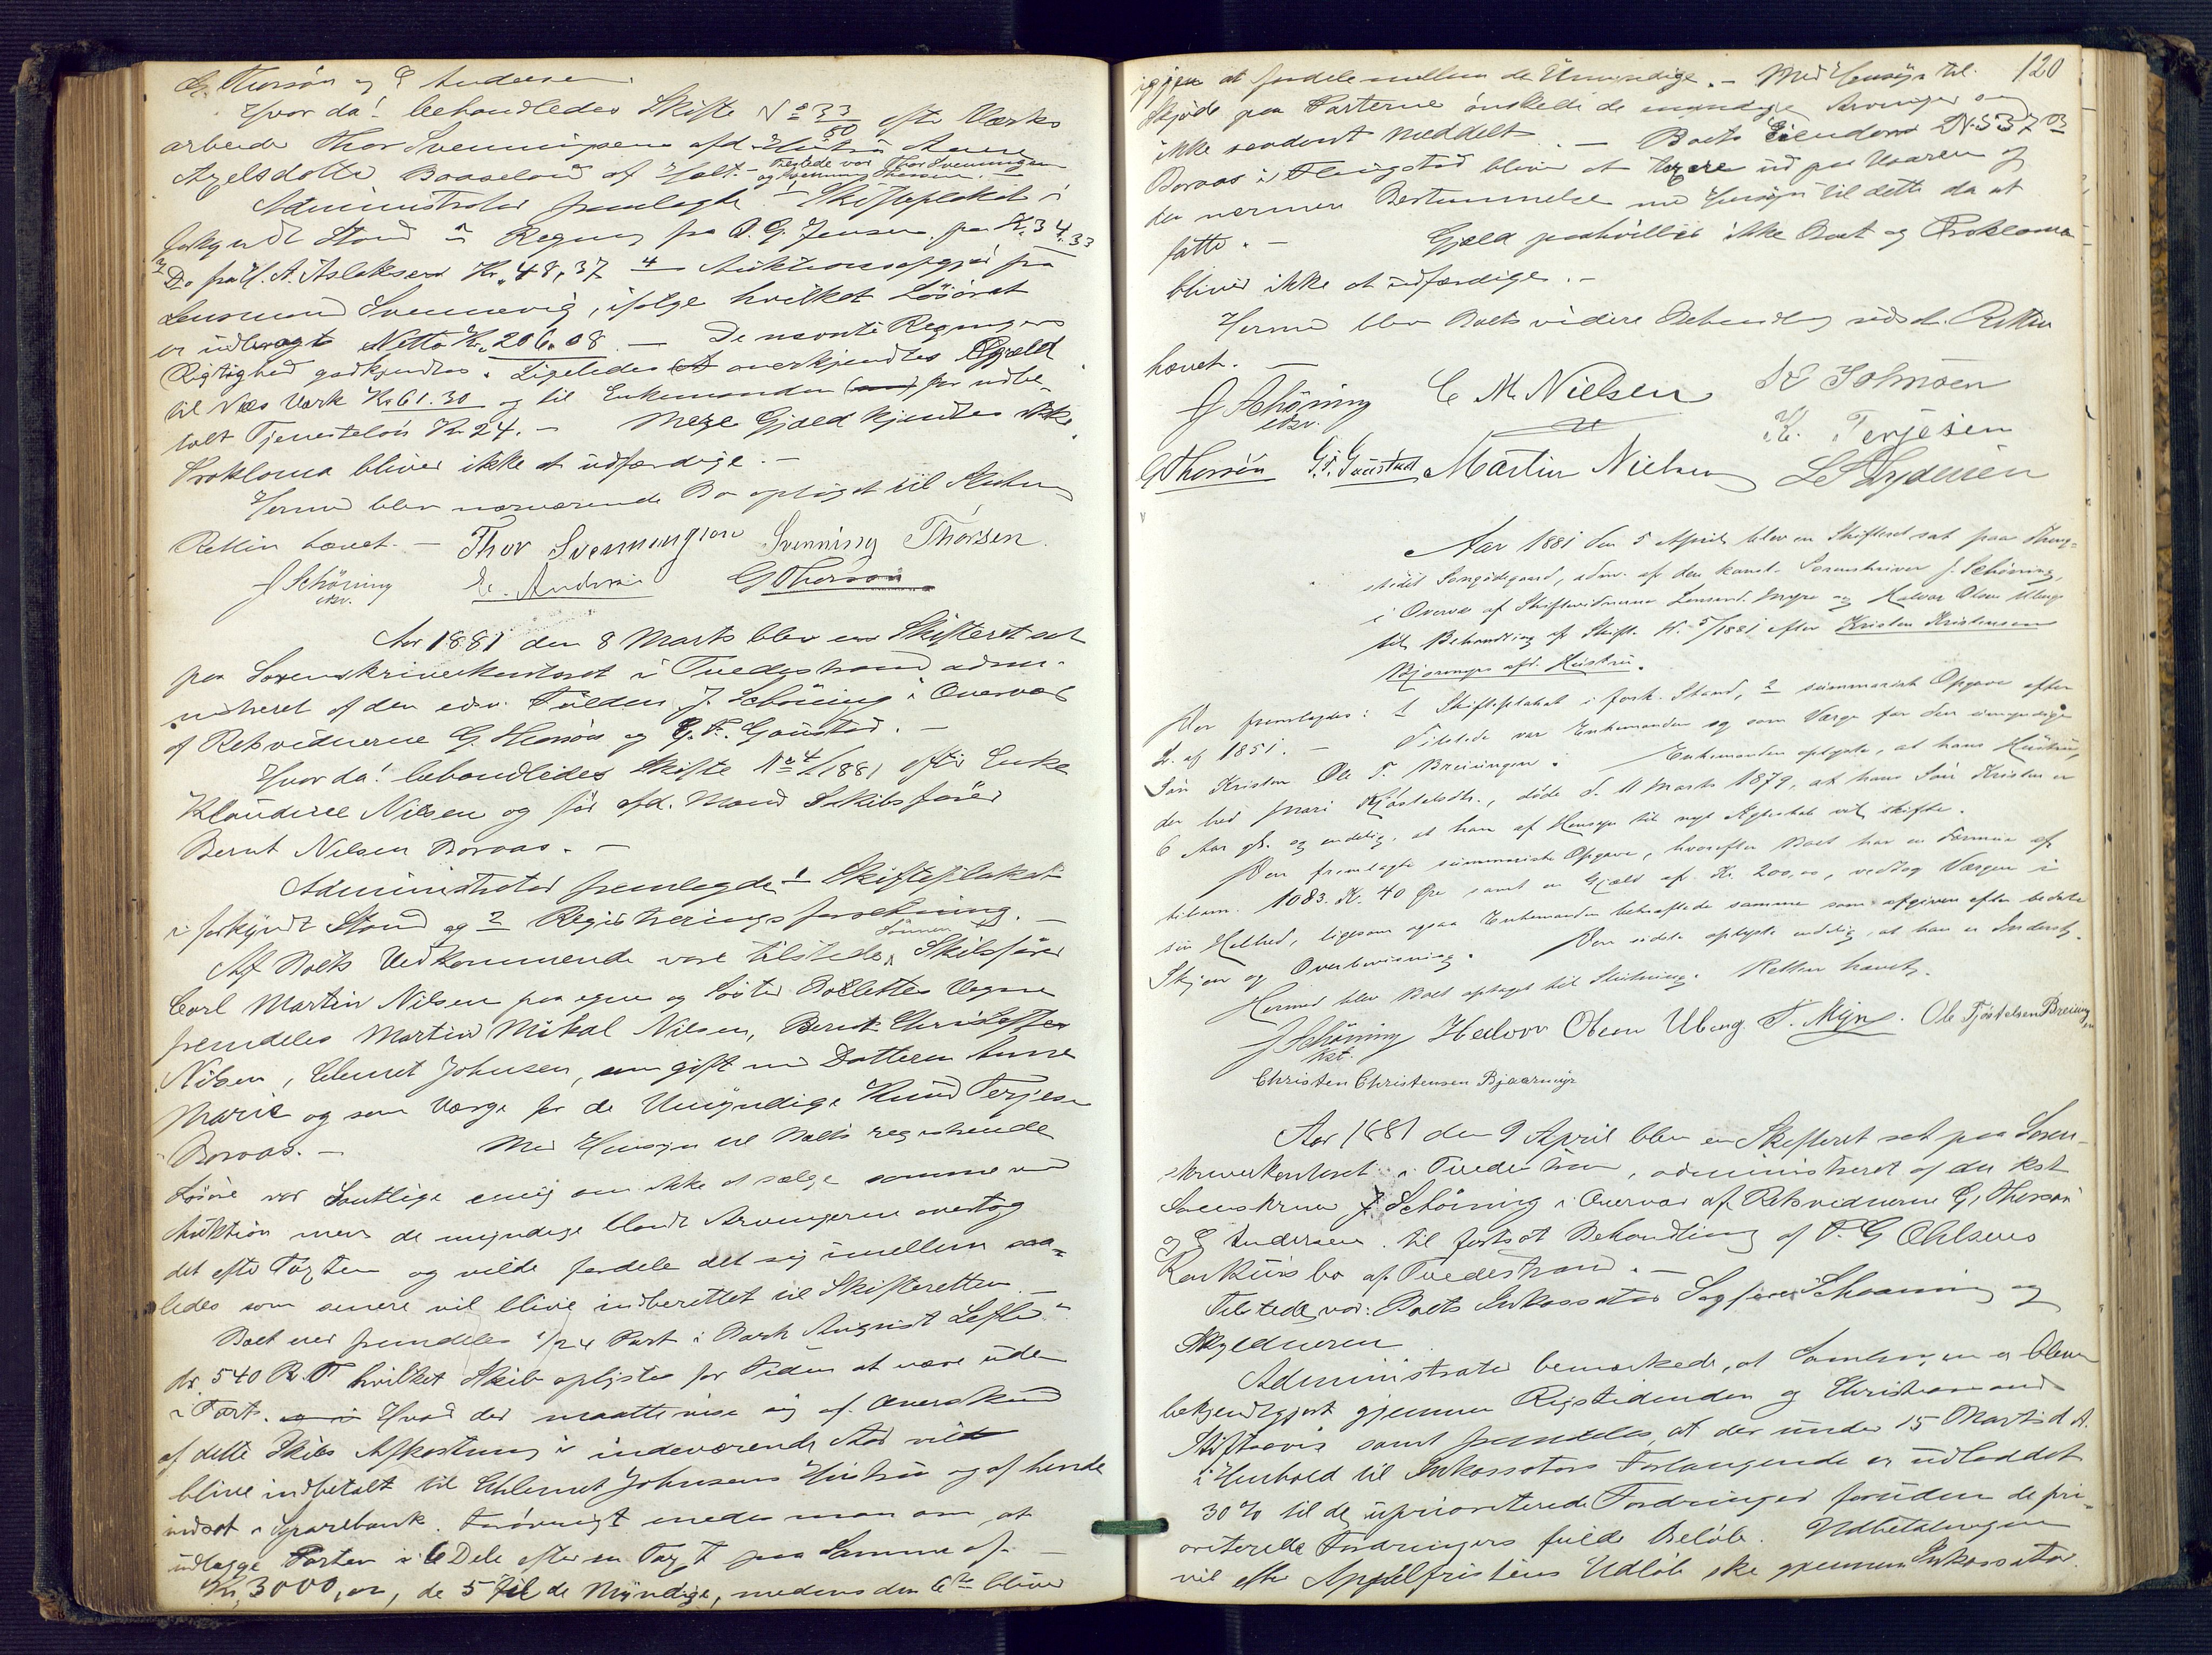 G. Thorsøn og E Andersen.
Hvor da! behandledes Skifte No 33/80 efter Værks
arbeider Thor Svenningsens afd. Hustru Anne
Axelsdotter Baaseland af Holt. - Tilstede var Thor Svenningsen
og Svenning Thorsen.
Administrator fremlagde 1 Skifteplakat i
forkyndt Stand 2 Regning fra O. G. Jensen paa K. 34.33
3 Do fra H. A. Aslaksen Kr. 48,37 4 Auktionsopgjør fra
Lensmand Svennevig, ifølge hvilket Løsøret
er udbragt Netto Kr. 206.08. — De nævnte Regningers
Rigtighed godkjendtes. Ligeledes anerkjendtes Gjæld
til Næs Værk Kr 61.30 og til Enkemanden for udbe-
talt Tjenesteløn Kr. 24. - Mere Gjæld kjendtes ikke.
Proklama bliver ikke at udfærdige. -
Hermed blev nærværende Bo optaget til Slutning
Retten hævet. - Thor Svenningson Svenning Thorsen.
J Schöning edsv. E. Andersen G Thorsøn
Aar 1881 den 8 Marts blev en Skifteret sat
paa Sorenskriverkontoret i Tvedestrand admi-
nistreret af den edsv. Fuldm. J. Schöning i Overvær
af Retsvidnerne G. Thorsøn og G. F. Gaustad. -
Hvor da! behandledes Skifte No 4/1881 efter Enke
Klaudine Nilsen og før afd. Mand Skibsfører
Bernt Nilsen Boraas. -
Administrator fremlagde 1 Skifteplakat
i forkyndt Stand og 2 Registreringsforretning. -
Af Boets Vedkommende vare tilstede Sønnen Skibsfører
Carl Martin Nilsen paa egne og Søster Bolettes Vegne
fremdeles Martin Mikal Nilsen, Bernt Christoffer
Nilsen, Ehlert Johnsen, som gift med Datteren Anne
Marie og som Værge for de Umyndige Knud Terjesen
Boraas. - Med Hensyn til Boets registrerede
Løsøre var Samtlige enig om ikke at sælge samme ved
Auktion men de myndige blandt Arvingerne overtog
det efter Taxten og vilde fordele det sig imellem saa-
ledes som senere vil blive indberettet til Skifteretten. -
Boet eier fremdeles 1/24 Part i Bark August Leffler"
dr. 540 R. T hvilket Skib oplystes for Tiden at være uden
i Fart. Hvad der maatte vise sig af Overskud
af dette Skibs Afkastning i indeværende Aar vilde
blive indbetalt til Ehlert Johnsens Hustru og af hende
indsat i Sparebank. Forøvrigt enedes man om at
udlægge Parten i 6 Dele efter en Taxt paa Samme af -
Kr. 3000,00, de 5 til de Myndige, medens den 6te bliver
120
igjen at fordele mellem de Umyndige. - Med Hensyn til
Skjøde paa Parterne ønskede de myndige Arvinger
ikke saadant meddelt. - Boets Eiendom
Boraas i Flangstad bliver at taxere ud paa Vaaren og
den nærmere Bestemmelse med Hensyn til dette da at
fatte. - Gjæld paahviler ikke Boet og Proklama
bliver ikke at udfærdige. -
Hermed blev Boets videre Behandling udsat. Retten
hævet. -
J Schöning edsv. C M Nielsen K Johnsen
K. Terjesen
G Thorsøn G. F. Gaustad Martin Nielsen
Aar 1881 den 5 April blev en Skifteret sat paa
Sørgødegaard, adm. af den konst. Sorenskriver J. Schöning,
i Overvær af Skiftevidnerne Lensmd. Myre og Halvor Olsen Uberg
til Behandling af Skifte N. 5/1881 efter Kristen Kristensen
Bjormyrs afd. Hustru.
Der fremlagdes: 1 Skifteplakat i fork. Stand, 2 summarisk Opgave efter
L. af 1851. - Tilstede var Enkemanden og som Værge for den umyndige
Søn Kristen Ole T. Breiningen. Enkemanden oplyste, at hans Hustru,
der hed Mari Kjøstelsdtr., døde d. 11 Marts 1879, at hans Søn Kristen er
6 Aar gl. og endelig, at han af Hensyn til nyt Ægteskab vil skifte.
Den fremlagte summariske Opgave, hvorefter Boet har en Formue af
tilsam. 1083 K. 40 Øre samt en Gjæld af Kr. 200,00, vedtog Værgen i
sin Helhed, ligesom ogsaa Enkemanden bekræftede samme som afgiven efter bedste
Skjøn og Overbevisning. Den sidste oplyste endelig, at han er Inderst.
Hermed blev Boet optaget til Slutning. Retten hævet.
J Schöning kst. Halvor Olsen Uberg T. Myre. Ole Tjøstelsen Breiningen
Christen Christensen Bjaarmyr
Aar 1881 den 9 April blev en Skifteret sat paa Soren-
skriverkontoret i Tvedestrand, administreret af den kst
Sorenskriver J. Schöning i Overvær af Retsvidnerne G. Thorsøn
og E Andersen til fortsat Behandling af P. G Ohlsens
Konkursbo af Tvedestrand. -
Tilstede var: Boets Inkassator Sagfører Schaaning og
Skyldneren
Administrator bemærkede, at Samlingen er bleven
bekjendtgjort gjennem Rigstidenden og Christiansands
Stiftsavis samt fremdeles, at der under 15 Marts d. A.
i Henhold til Inkassators Forlangende er udloddet
30% til de uprioriterede Fordringer foruden de pri-
oriterede Fordringers fulde Beløb. Udbetalingen
vil efter Appelfristens Udløb ske gjennem Inkassator.